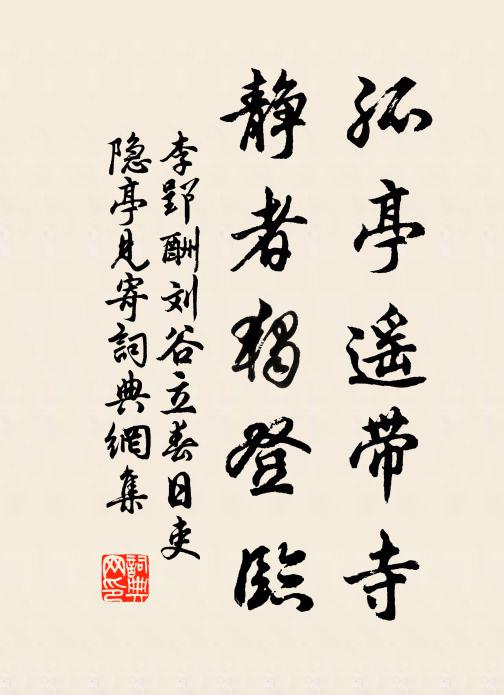 孤亭遥带寺
静者独登臨
李郢酬刘谷立春日吏
隐亭見寄詞典網集
詞典网印